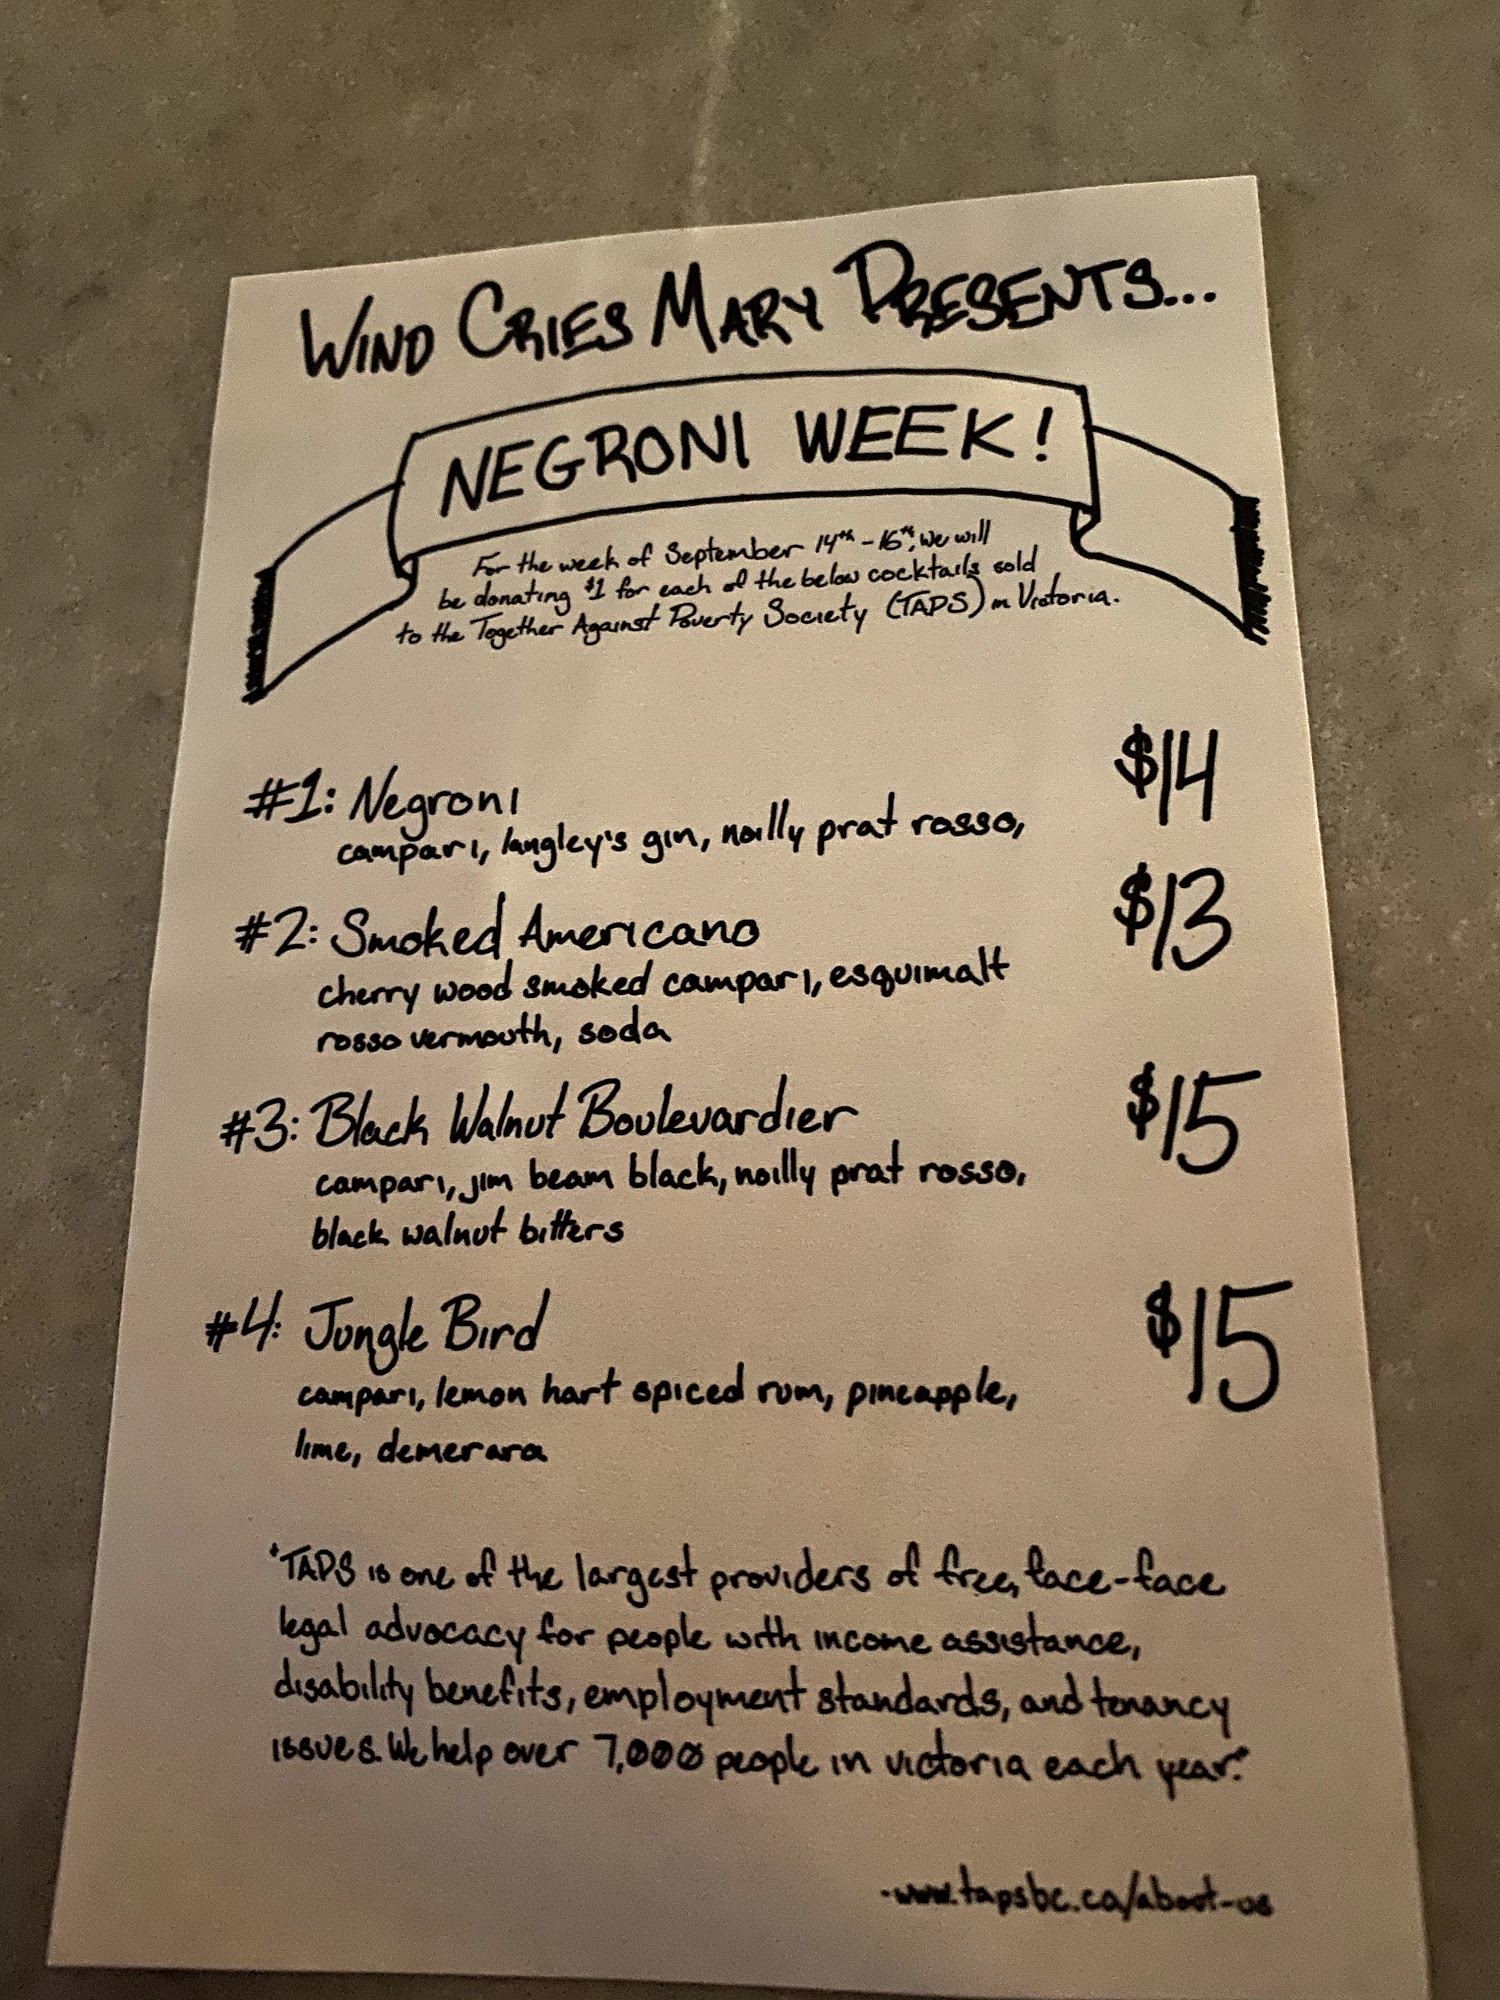 WIND CRIES MARY PRESENTS...
NEGRONI WEEK!
For the week of September 14th - 16th, we will
be donating $1 for each of the below cocktails sold
to the Together Against Poverty Society (TAPS) in Victoria.
#1: Negroni $14
campari, langley's gin, noilly prat rosso,
#2: Smoked Americano $13
cherry wood smoked campari, esquimalt
rosso vermouth, soda
#3: Black Walnut Boulevardier $15
campari, jim beam black, noilly prat rosso,
black walnut bitters
#4: Jungle Bird $15
campari, lemon hart spiced rum, pineapple,
lime, demerara
"TAPS is one of the largest providers of free, face-face
legal advocacy for people with income assistance,
disability benefits, employment standards, and tenancy
issues. We help over 7,000 people in victoria each year."
-www.tapsbc.ca/about-us